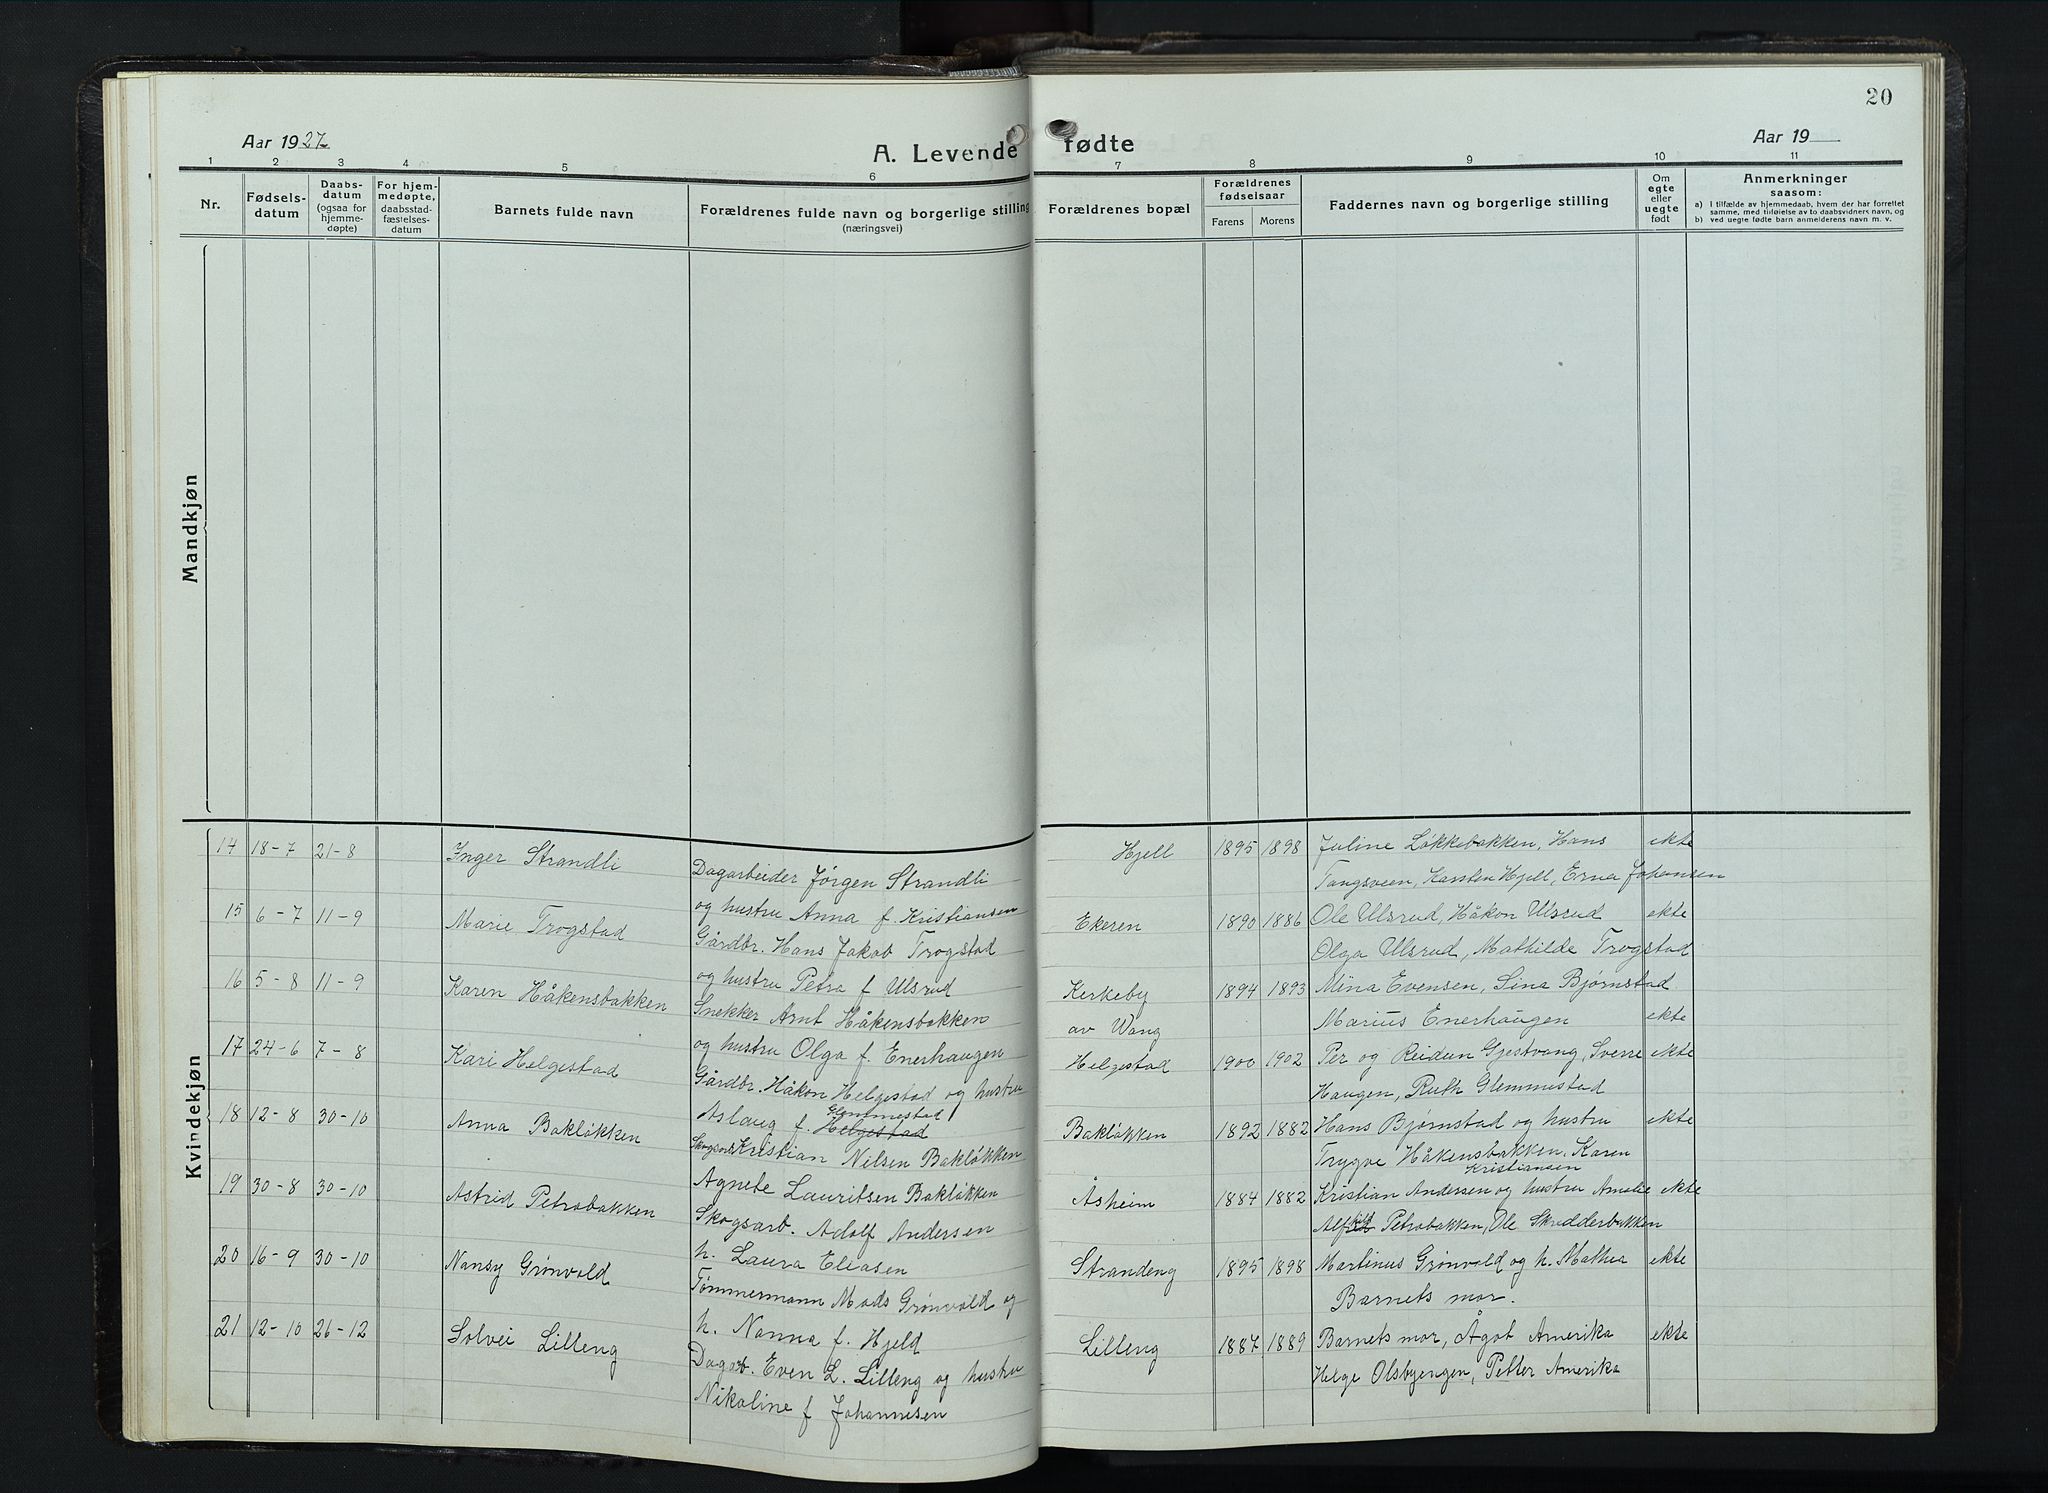 20
Aar 1927
A. Levende fødte
Aar 19
1 2 3 4 5 6 7 8 9 10 11
Nr.
Fødsels-
datum
Daabs-
datum
(ogsaa for
hjemme-
døpte)
For hjem-
medøpte,
daabsstad-
fæstelses-
datum
Barnets fulde navn
Forældrenes fulde navn og borgerlige stilling
(næringsvei)
Forældrenes bopæl
Forældrenes
fødselsaar
Farens Morens
Faddernes navn og borgerlige stilling
Om
egte
eller
uegte
født
Anmerkninger
saasom:
a) I tilfælde av hjemmedaab, hvem der har forrettet
samme, med tilføielse av to daabsvidners navn, og
b) ved uegte fødte barn anmelderens navn m. v.
Mandkjøn
Kvindekjøn
14 18-7 21-8 Inger Strandli
Dagarbeider Jørgen Strandli
og hustru Anna f. Kristiansen
Hjell 1895 1898 Juline Løkkebakken, Hans ekte
Tangsveen, Karsten Hjell, Erna Johansen
15 6-7 11-9 Marie Trogstad
Gårdbr. Hans Jakob Trogstad
og hustru Petra f Ulsrud
Ekeren 1890 1886 Ole Ulsrud, Håkon Ulsrud ekte
Olga Ulsrud, Mathilde Trogstad
16 5-8 11-9 Karen Håkensbakken
Snekker Arnt Håkensbakken
og hustru Olga f. Enerhaugen
Kerkeby
av Wang
1894 1893 Mina Evensen, Lina Bjørnstad
Marius Enerhaugen ekte
17 24-6 7-8 Kari Helgestad
Gårdbr. Håkon Helgestad og hustru
Glemmestad
Aslaug f. Helgestad
Helgestad 1900 1902 Per og Reidun Gjestvang, Sverre ekte
Haugen, Ruth Glemmestad
18 12-8 30-10 Anna Bakløkken
Skogsarb Kristian Nilsen Bakløkken
Agnete Lauritsen Bakløkken
Bakløkken 1892 1882 Hans Bjørnstad og hustru ekte
Trygve Håkensbakken, Karen
Kristiansen
19 30-8 30-10 Astrid Petrobakken
Skogsarb. Adolf Andersen
h. Laura Eliasen
Åsheim 1884 1882 Kristian Andersen og hustru Amalie ekte
Alf Petrobakken, Ole Skredderbakken
20 16-9 30-10 Nansy Grønvold
Tømmermann Mads Grønvold og
h. Nanna f. Hjeld
Strandeng 1895 1898 Martinus Grønvold og h. Mathea ekte
Barnets mor.
21 12-10 26-12 Solvei Lilleng
Dagarb. Even L. Lilleng og hustru
Nikoline f Johannesen
Lilleng 1887 1889 Barnets mor, Ågot Amerika ekte
Helge Olsbyengen, Petter Amerika